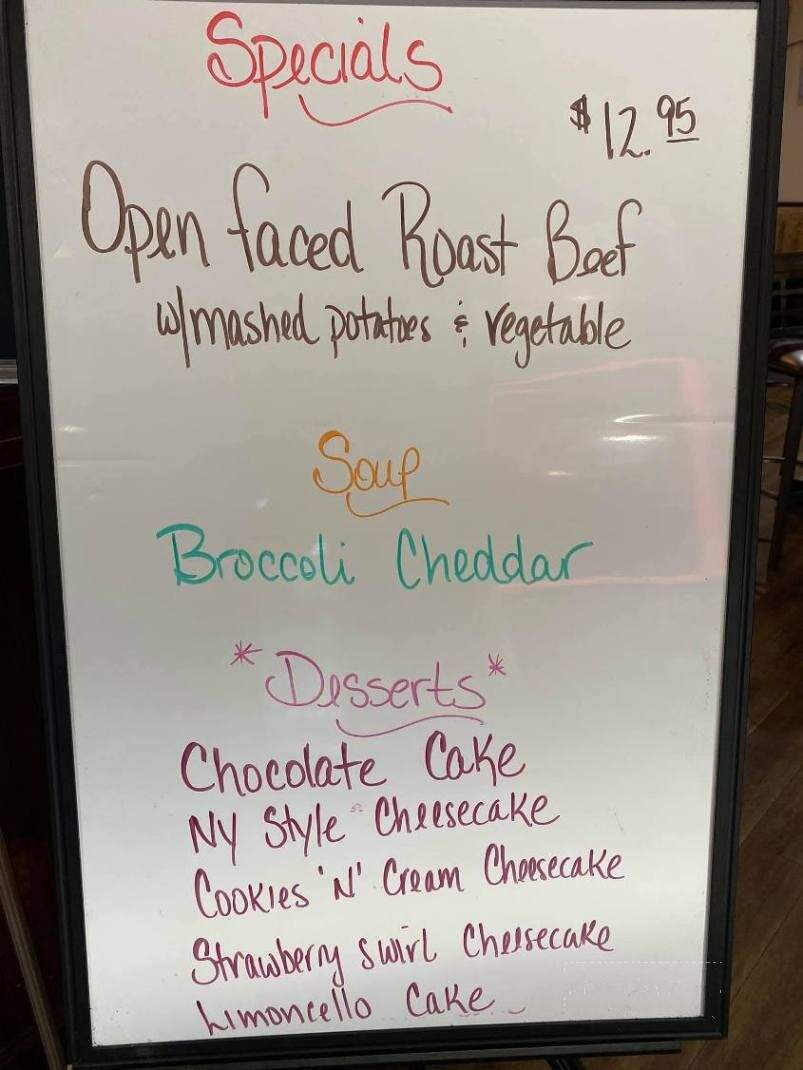 Specials
$12.95
Open faced Roast Beef
w/mashed potatoes & vegetable
Soup
Broccoli Cheddar
*Desserts*
Chocolate Cake
NY Style Cheesecake
Cookies 'N' Cream Cheesecake
Strawberry swirl Cheesecake
Limoncello Cake